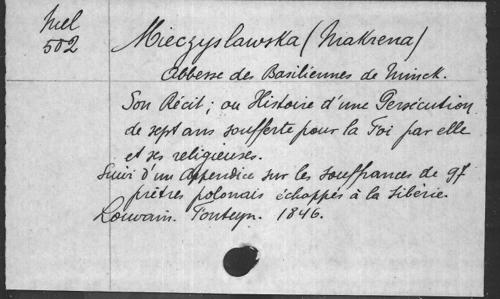 Mel
502
Mieczyslawska (Makrena)
Abbesse des Basiliennes de Minck.
Son Récit; ou Histoire d'une Persécution
de sept ans soufferte pour la Foi par elle
et ses religieuses.
Suivi d'un Appendice sur les souffrances de
prêtres polonais échappés à la Sibérie.
Louvain. Fonteyn. 1846.